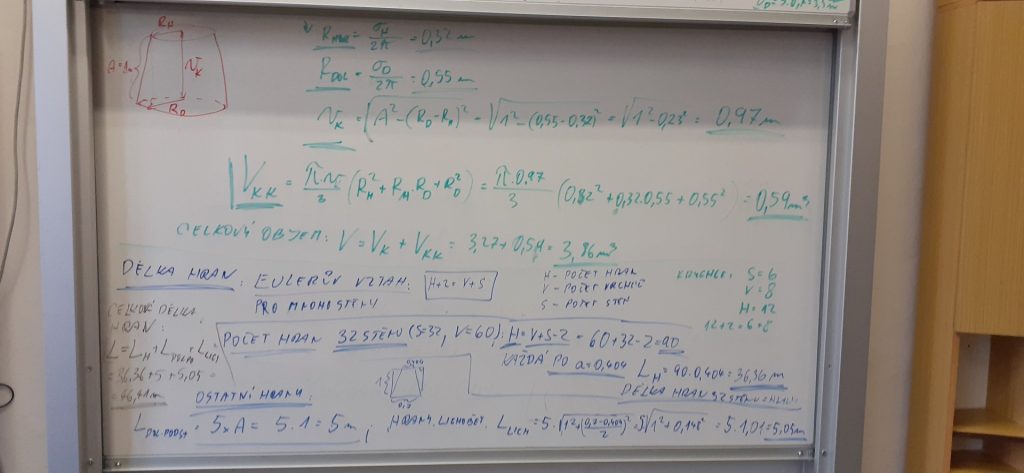 R_H
A=1m
v_K
R_D
R_HOR = σ_H/2π = 0,32 m
R_DOL = σ_D/2π = 0,55 m
v_K = √A²-(R_D-R_H)² = √1²-(0,55-0,32)² = √1²-0,23² = 0,97m
V_KK = π·v/3 (R_H² + R_H·R_D + R_D²) = π·0,97/3 (0,32² + 0,32·0,55 + 0,55²) = 0,59m³
CELKOVÝ OBJEM: V = V_K + V_KK = 3,27 + 0,59 = 3,86m³
DÉLKA HRAN: EULERŮV VZTAH: H+2=V+S
PRO MNOHOSTĚNY
H - POČET HRAN
V - POČET VRCHOLŮ
S - POČET STĚN
S=6
V=8
H=12
12+2=6+8
CELKOVÁ DÉLKA
HRAN:
= 36,36+5+5,05 =
= 46,41m
POČET HRAN 32 STĚNU (S=32, V=60): H=V+S-2 = 60+32-2=90
KAŽDÁ PO a=0,404 L_H = 90·0,404 = 36,36 m
0,404
1
0,7
OSTATNÍ HRANY:
= 5×A = 5·1 = 5m;
HRANY LICHOBĚŽ. L_LICH = 5·√1²+((0,7-0,404)/2)² = 5√1²+0,148² = 5·1,01 = 5,05m